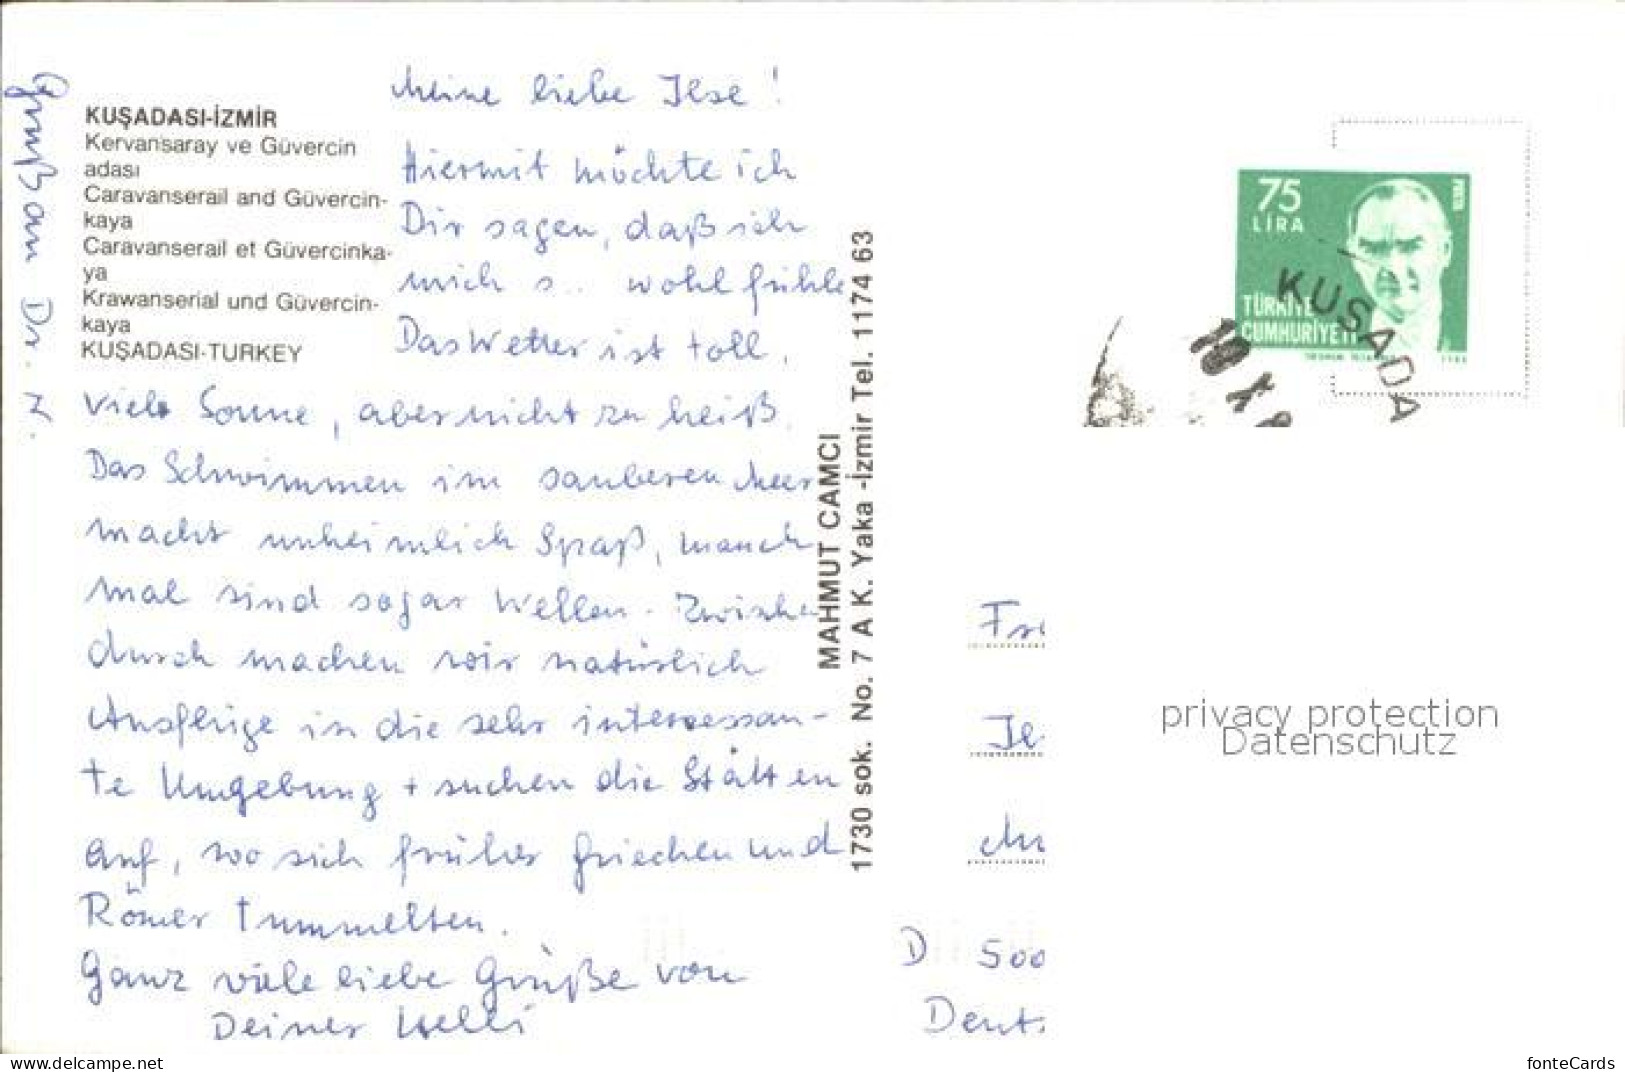 Meine liebe Ilse!
Hiermit möchte ich
Dir sagen, daß ich
mich s.. wohl fühle
Das Wetter ist toll,
viel Sonne, aber nicht zu heiß.
Das Schwimmen im sauberen Meer
macht unheimlich Spaß, manch
mal sind sogar Wellen. Zwischen
durch machen wir natürlich
Ausflüge in die sehr interessan-
te Umgebung + suchen die Stätten
auf, wo sich früher Griechen und
Römer tummelten.
Ganz viele liebe Grüße von
Deiner Helli
Gruß an Dr. Z.
KUŞADASI-İZMİR
Kervansaray ve Güvercin
adası
Caravanserail and Güvercin-
kaya
Caravanserail et Güvercinka-
ya
Krawanserial und Güvercin-
kaya
KUŞADASI-TURKEY
MAHMUT CAMCI
1730 sok. No. 7 A K. Yaka -İzmir Tel. 1174 63
75
LİRA
TÜRKİYE
CUMHURİYETİ
KUŞADA
10 X
D 500
privacy protection
Datenschutz
www.delcampe.net
fonteCards